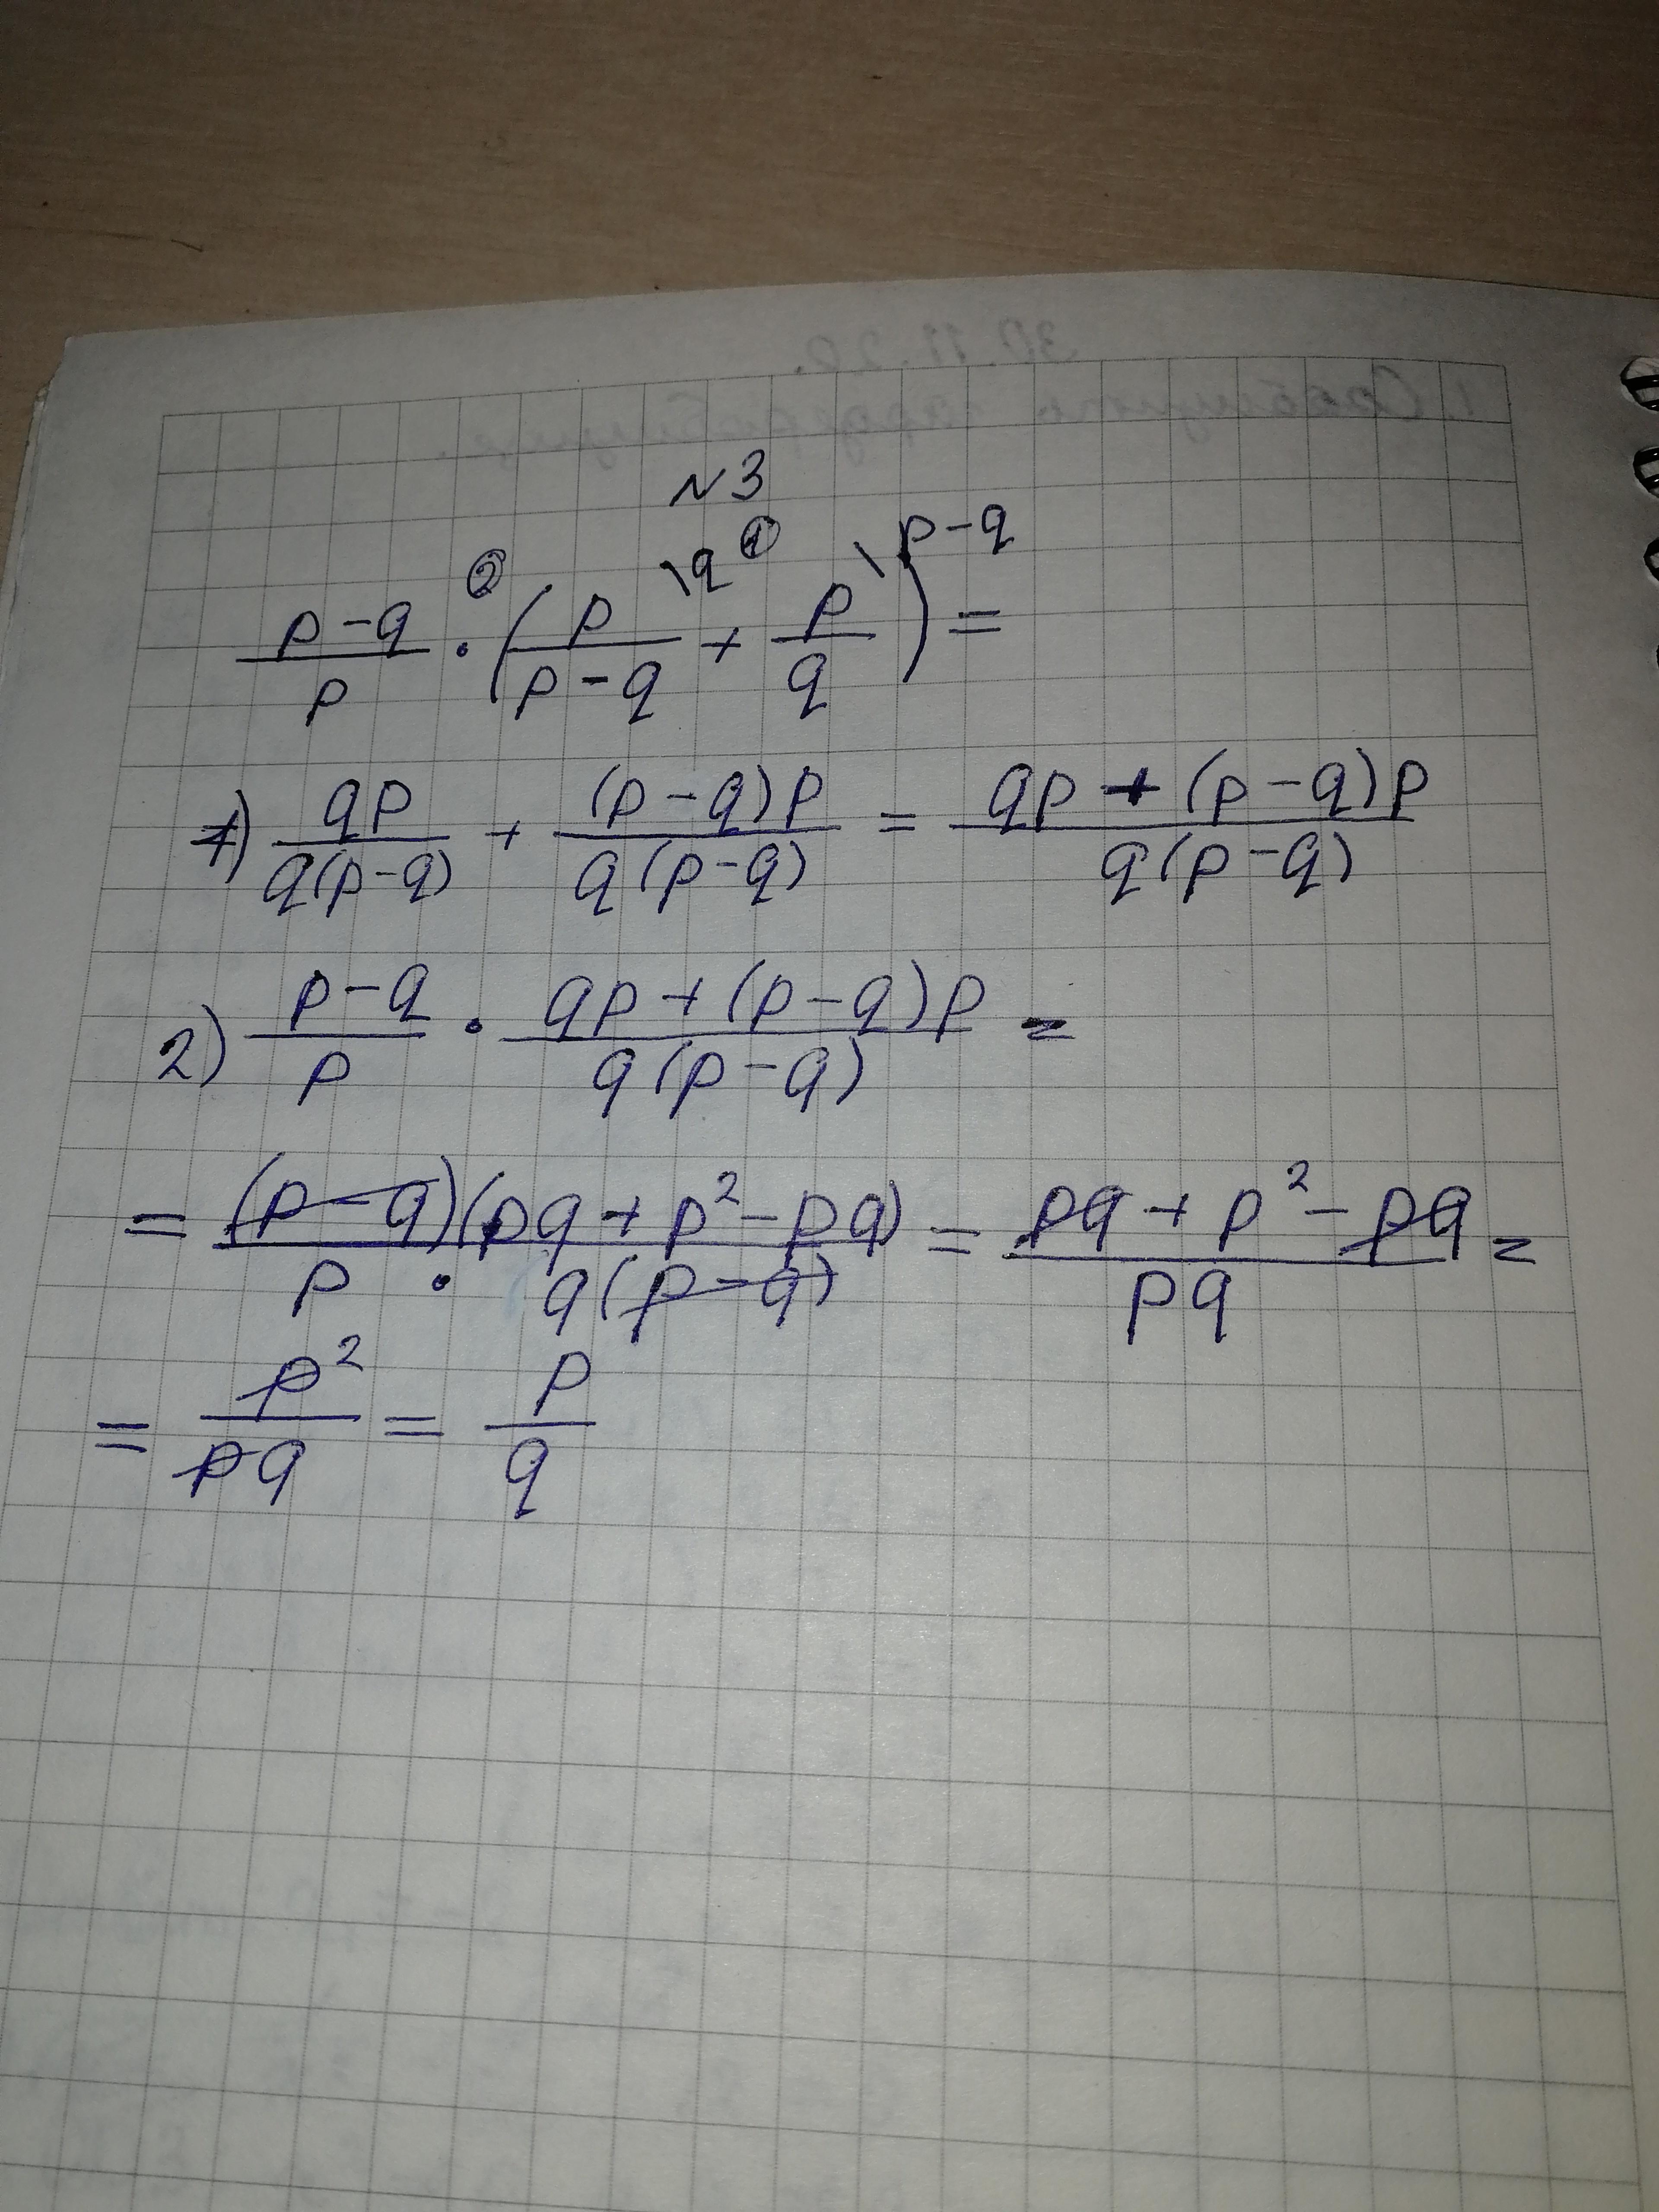 30.11.20.
№3
(p-q)/p ② · (p/(p-q) \q ① + p/q \p-q) =
1) qp/(q(p-q)) + ((p-q)p)/(q(p-q)) = (qp + (p-q)p)/(q(p-q))
2) (p-q)/p · (qp + (p-q)p)/(q(p-q)) =
= ((p-q)(pq + p² - pq))/(p · q(p-q)) = (pq + p² - pq)/(pq) =
= p²/(pq) = p/q